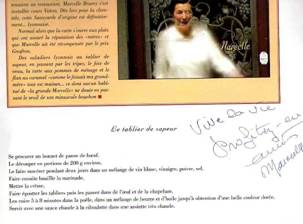 mouvait en mutation, Marcelle Bizarri s'est
installée cours Vitton. Dès lors pour la clien-
tèle, cette Sauvegarde d'origine est définitive-
ment... lyonnaise.
Normal alors que la carte s'ouvre aux plats
qui ont assuré la réputation des «mères» et
que Marcelle ait été récompensée par le prix
Des saladiers lyonnais au tablier de
sapeur, en passant par les tripes, le foie de
veau, la tarte aux pommes de ménage et le
flan au caramel «comme le faisait ma grand-
mère» tout est maison... et donc aucun habi-
tué de «la grande Marcelle» ne donne en pas-
sant le seuil de son minuscule bouchon
Marcelle
Le tablier de sapeur
Se procurer un bonnet de panse de bœuf.
Le découper en portions de 200 g environ.
Le faire macérer pendant deux jours dans un mélange de vin blanc, vinaigre, poivre, sel.
Faire ensuite bouillir la marinade.
Mettre la crème.
Faire égoutter les tabliers puis les passer dans de l'œuf et de la chapelure.
Les cuire 5 à 8 minutes dans la poêle, dans un mélange de beurre et d'huile jusqu'à obtention d'une belle couleur dorée.
Servir avec une sauce chaude à la ciboulette dans une assiette très chaude.
Vive la vie
profitez-en
Marcelle